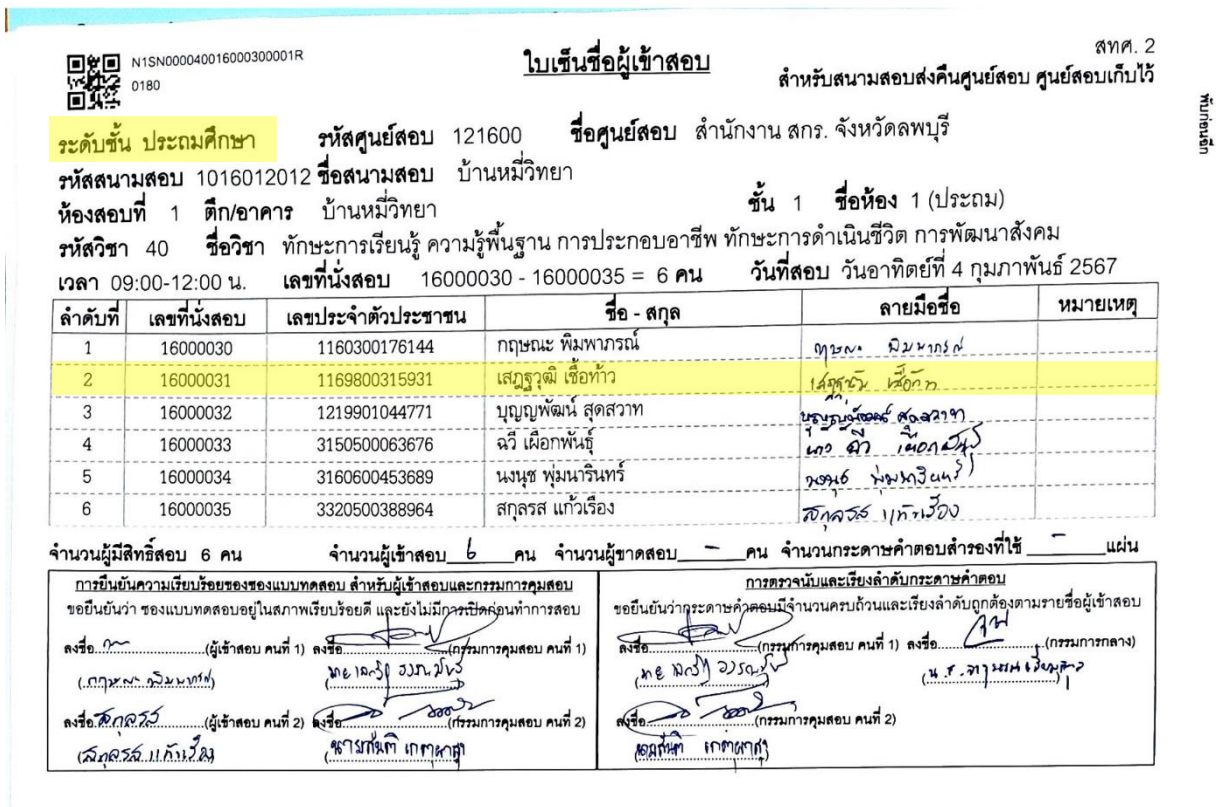 N1SN000040016000300001R
0180
ใบเซ็นชื่อผู้เข้าสอบ
สทศ. 2
สำหรับสนามสอบส่งคืนศูนย์สอบ ศูนย์สอบเก็บไว้
พับก่อนฉีก
ระดับชั้น ประถมศึกษา รหัสศูนย์สอบ 121600 ชื่อศูนย์สอบ สำนักงาน สกร. จังหวัดลพบุรี
รหัสสนามสอบ 1016012012 ชื่อสนามสอบ บ้านหมี่วิทยา
ห้องสอบที่ 1 ตึก/อาคาร บ้านหมี่วิทยา ชั้น 1 ชื่อห้อง 1 (ประถม)
รหัสวิชา 40 ชื่อวิชา ทักษะการเรียนรู้ ความรู้พื้นฐาน การประกอบอาชีพ ทักษะการดำเนินชีวิต การพัฒนาสังคม
เวลา 09:00-12:00 น. เลขที่นั่งสอบ 16000030 - 16000035 = 6 คน วันที่สอบ วันอาทิตย์ที่ 4 กุมภาพันธ์ 2567
ลำดับที่ เลขที่นั่งสอบ เลขประจำตัวประชาชน ชื่อ - สกุล ลายมือชื่อ หมายเหตุ
1 16000030 1160300176144 กฤษณะ พิมพาภรณ์ กฤษณะ พิมพาภรณ์
2 16000031 1169800315931 เสฎฐวุฒิ เชื้อท้าว
3 16000032 1219901044771 บุญญพัฒน์ สุดสวาท บุญญพัฒน์ สุดสวาท
4 16000033 3150500063676 ฉวี เผือกพันธุ์ ฉวี เผือกพันธุ์
5 16000034 3160600453689 นงนุช พุ่มนารินทร์ นงนุช พุ่มนารินทร์
6 16000035 3320500388964 สกุลรส แก้วเรือง สกุลรส แก้วเรือง
จำนวนผู้มีสิทธิ์สอบ 6 คน จำนวนผู้เข้าสอบ 6 คน จำนวนผู้ขาดสอบ - คน จำนวนกระดาษคำตอบสำรองที่ใช้ - แผ่น
การยืนยันความเรียบร้อยของซองแบบทดสอบ สำหรับผู้เข้าสอบและกรรมการคุมสอบ
ขอยืนยันว่า ซองแบบทดสอบอยู่ในสภาพเรียบร้อยดี และยังไม่มีการเปิดก่อนทำการสอบ
ลงชื่อ (ผู้เข้าสอบ คนที่ 1) ลงชื่อ (กรรมการคุมสอบ คนที่ 1)
(กฤษณะ พิมพาภรณ์)
ลงชื่อ สกุลรส (ผู้เข้าสอบ คนที่ 2) ลงชื่อ (กรรมการคุมสอบ คนที่ 2)
(สกุลรส แก้วเรือง)
การตรวจนับและเรียงลำดับกระดาษคำตอบ
ขอยืนยันว่ากระดาษคำตอบมีจำนวนครบถ้วนและเรียงลำดับถูกต้องตามรายชื่อผู้เข้าสอบ
ลงชื่อ (กรรมการคุมสอบ คนที่ 1) ลงชื่อ (กรรมการกลาง)
ลงชื่อ (กรรมการคุมสอบ คนที่ 2)